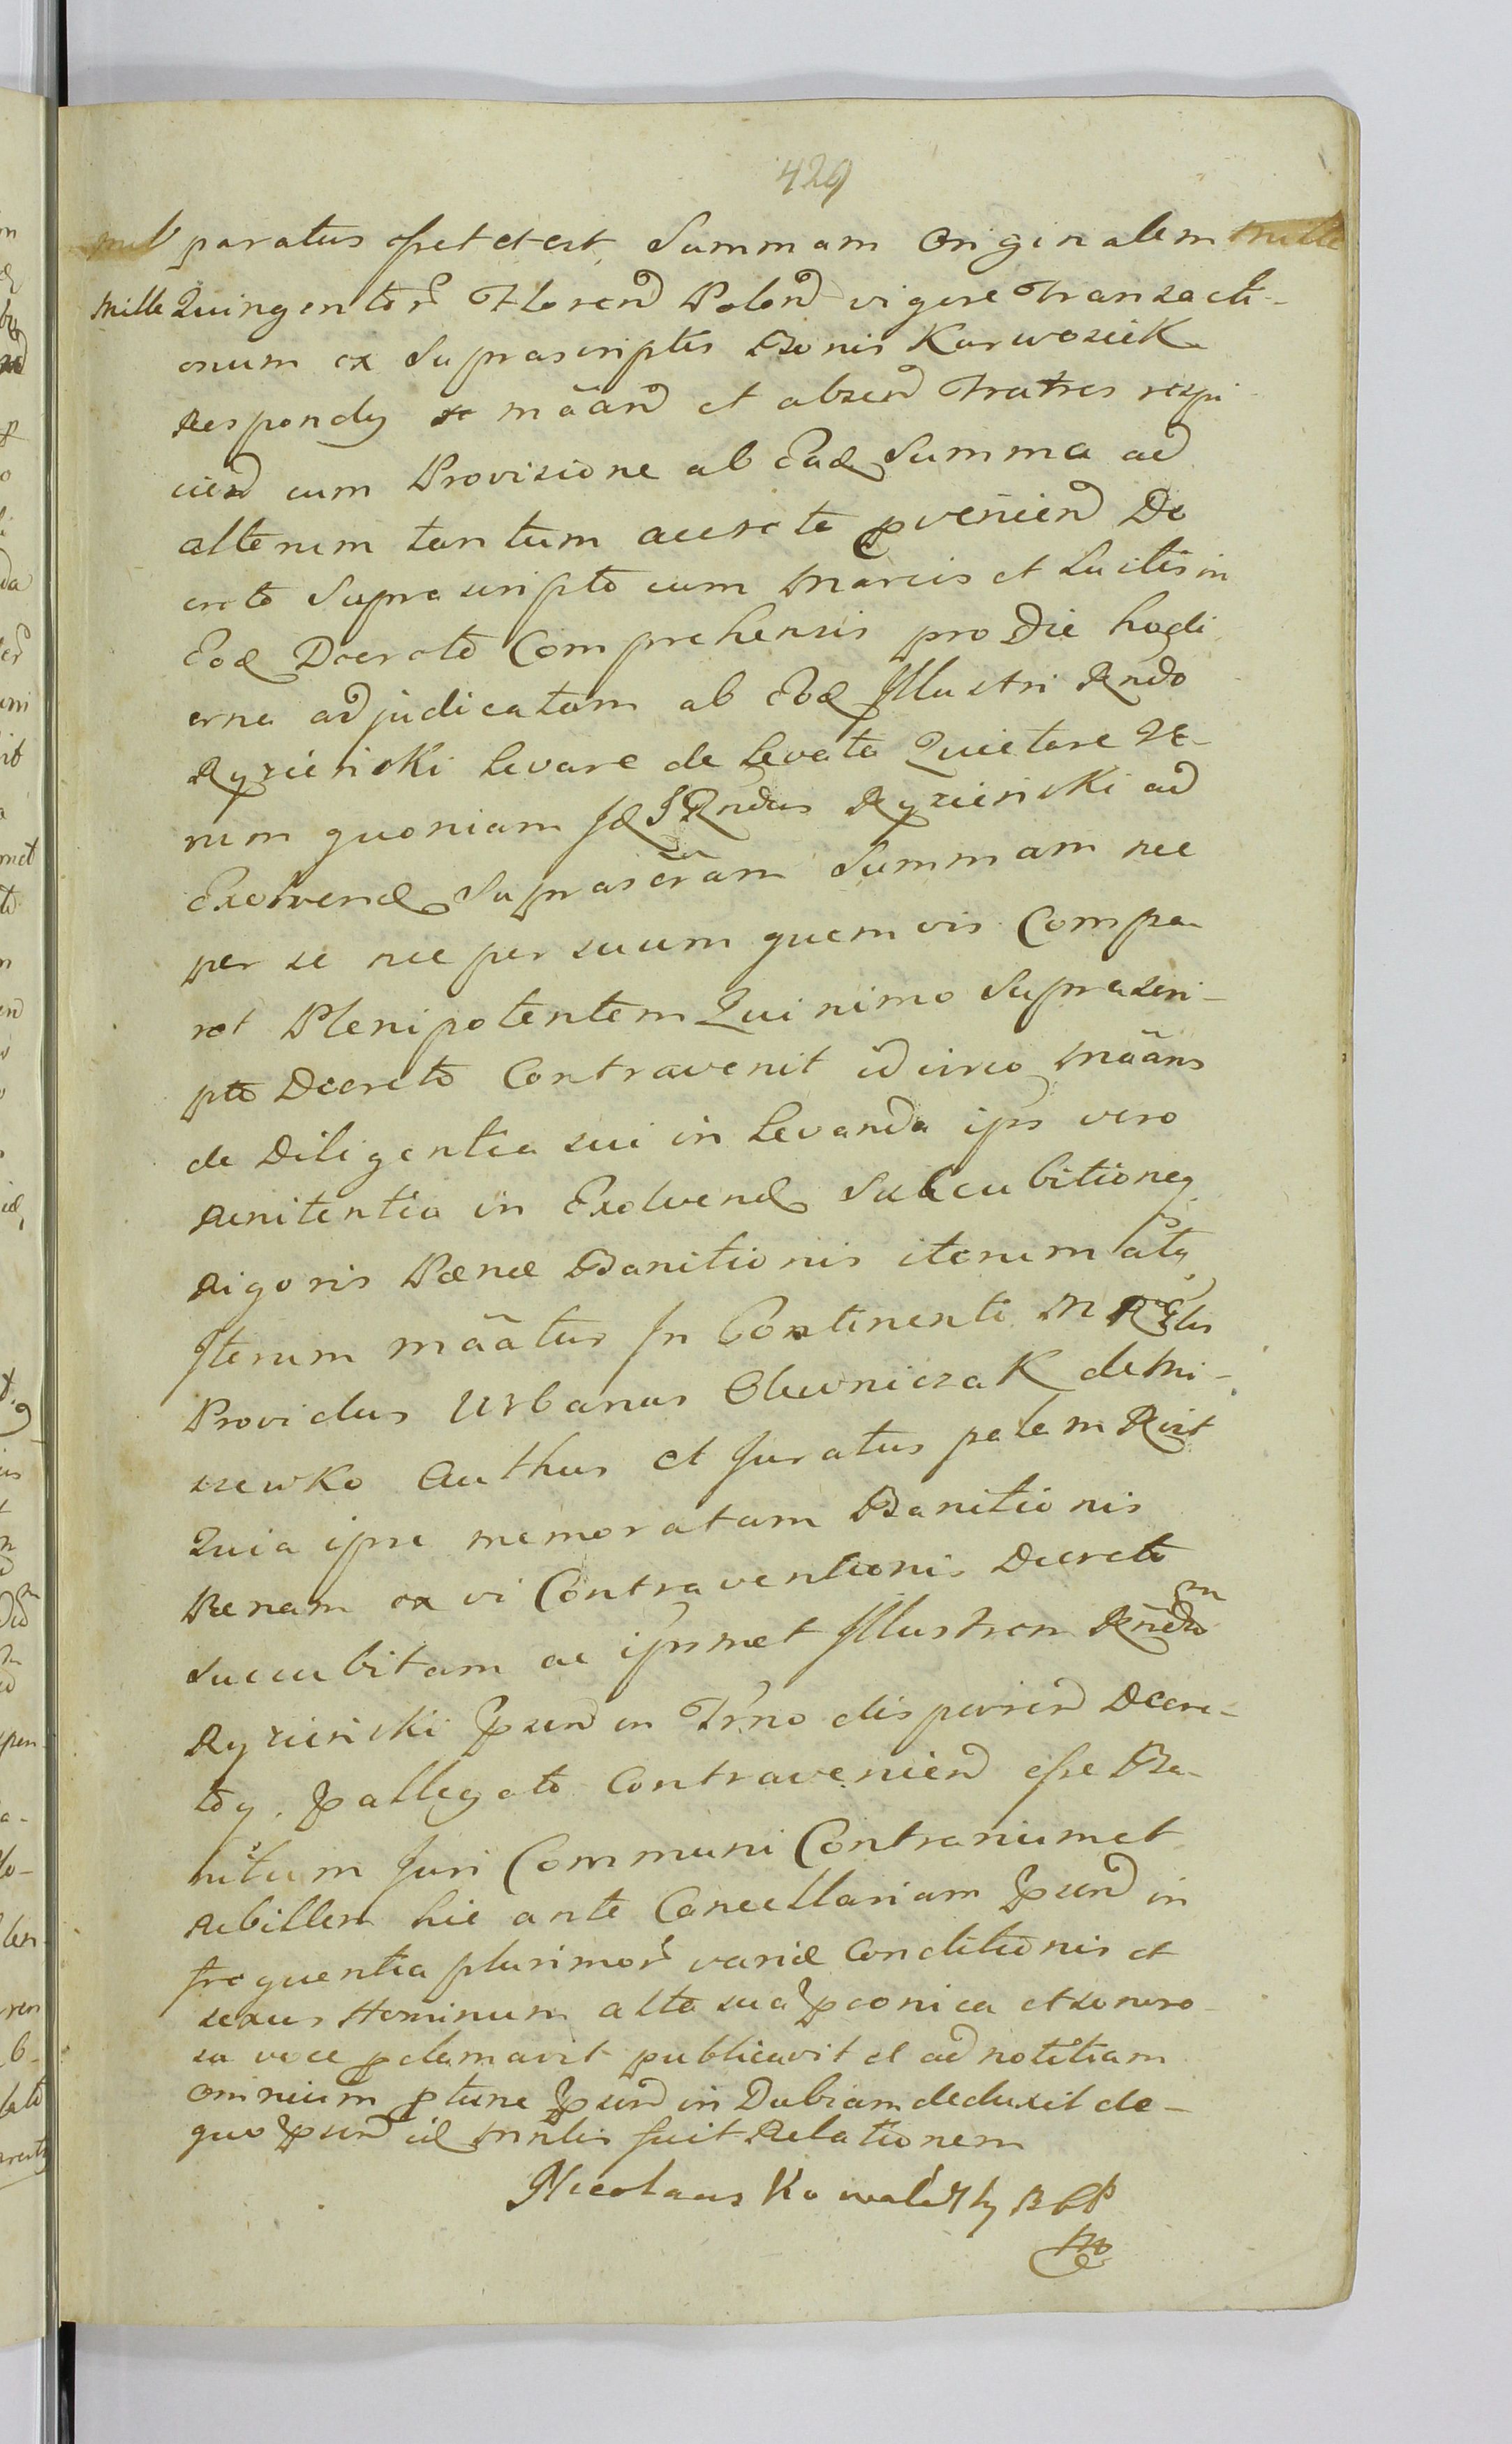 429
paratus esset et est, Summam Originalem
Mille Quingentor Floren Polon vigore Transacti-
onum ex Suprascriptis Bonis Karwosieck
Respondŋ et mãan et absen Fratres respi
cien cum Provisione ab Ead Summa ad
alterum tantum accreta pvenien De
creto Suprascripto cum Marcis et Luitis in
Eod Decreto Comprehensis pro Die hodi
erna adjudicatam ab Eod Illustri Rndo
Ryzieński Levare de Levata Quietare Ve-
rum quoniam Id I Rndus Ryzieński ad
Exolvend Suprascram Summam nec
per se nec per suum quemvis Compa
ret Plenipotentem Quinimo Suprascri-
pto Decreto Contravenit idcirco Mãans
de Diligentia sui in Levanda ips vero
Renitentia in Exolvend Succubitioneq
Rigoris Pænæ Banitionis iterum atq
Iterum mãatur In Continenti M R Glis
Providus Urbanus Olewniczak de Mi-
szewko Authus et Juratus palam Rvit
Quia ipse memoratam Banitionis
Pænam ex vi Contraventionis Decreto
succubitam ac ipsmet Illustrem Rndum
Ryzieński psen in Trno dispariien Decre-
toq. pallegato Contravenien esse Ba-
nitum Juri Communi Contrarium et
Rebillem hic ante Cancellariam psen in
frequentia plurimor variæ Conditionis et
sexus Hominum alta sua pconica et sonoro-
sa voce pclamavit publicavit et ad notitiam
omnium ptunc psen in Dubiam deduxit de-
quo psen id Mnlis fecit Relationem
Nicolaus Kowalesky BGP